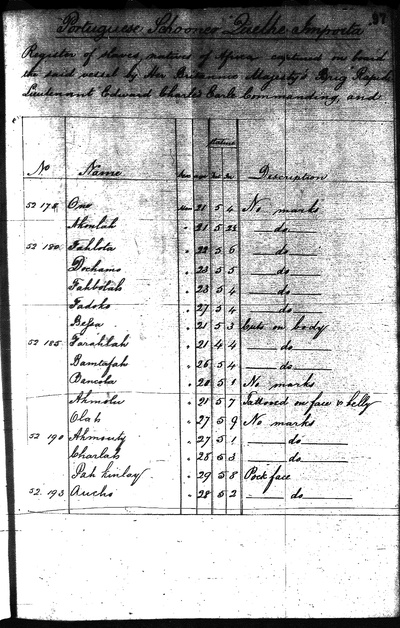 97
Portuguese Schooner Quelhe Importa
Register of slaves, natives of Africa captured on board
the said vessel by Her Britannic Majesty's Brig Rapid
Lieutenant Edward Charles Earle Commanding, and
Stature
No Name Sex Age Ft In Description
52 178 Ono Man 21 5 4 No marks
Ahonlah " 21 5 2½ do
52 180 Fahlota " 22 5 6 do
Dochamo " 23 5 5 do
Fahbotah " 23 5 4 do
Fadoko " 27 5 4 do
Bessa " 21 5 3 Cuts on body
52 185 Farahkah " 21 4 4 do
Bamtafah " 26 5 4 do
Bancola " 20 5 1 No marks
Ahmolu " 21 5 7 Tattooed on face & belly
Olah " 27 5 9 No marks
52 190 Ahmouty " 27 5 1 do
Charlah " 28 5 3 do
Pah kinlay " 29 5 8 Pock face
52.193 Aucho " 28 5 2 do